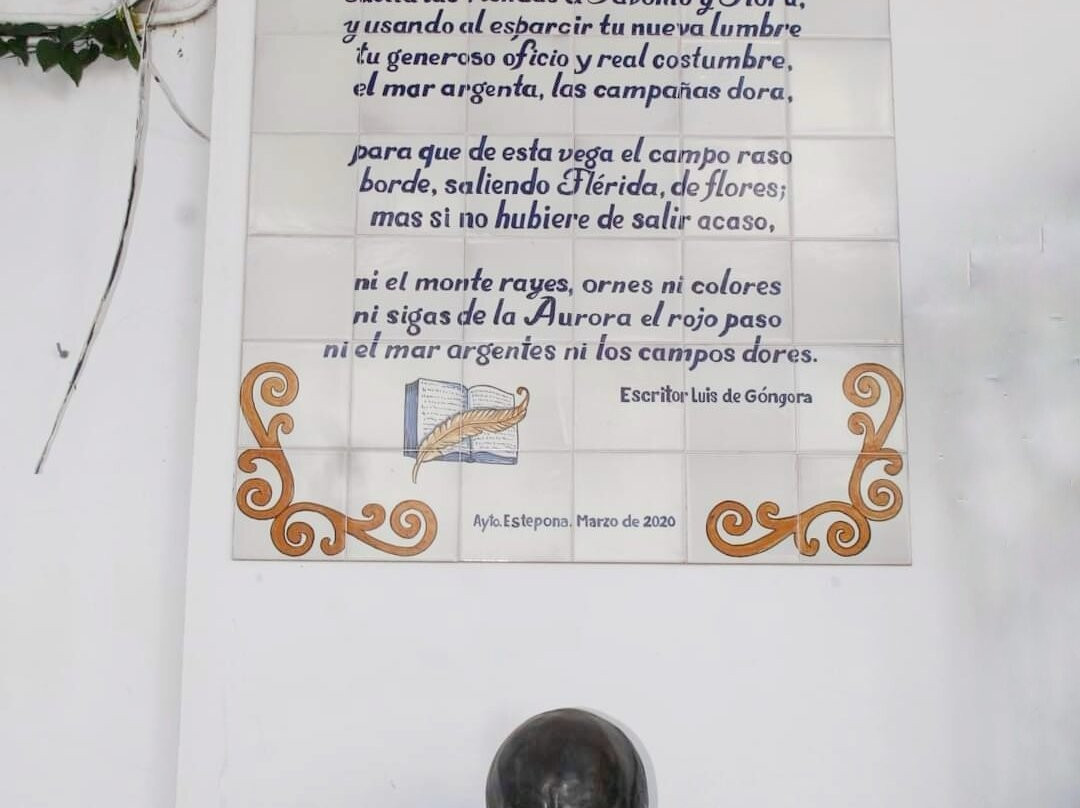 y usando al esparcir tu nueva lumbre
tu generoso oficio y real costumbre,
el mar argenta, las campañas dora,
para que de esta vega el campo raso
borde, saliendo Flérida, de flores;
mas si no hubiere de salir acaso,
ni el monte rayes, ornes ni colores
ni sigas de la Aurora el rojo paso
ni el mar argentes ni los campos dores.
Escritor Luis de Góngora
Ayto. Estepona. Marzo de 2020